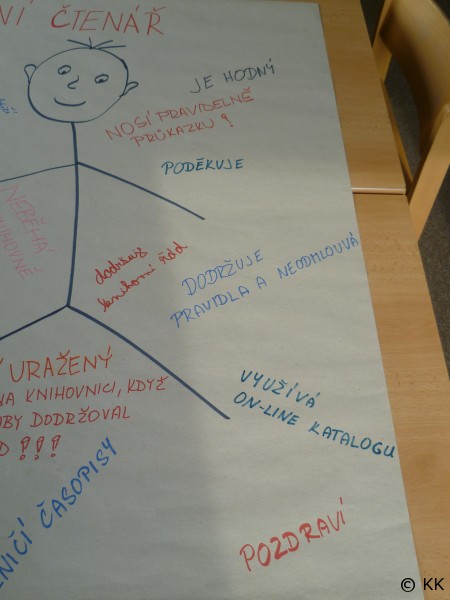 NÍ ČTENÁŘ
JE HODNÝ
NOSÍ PRAVIDELNĚ
PRŮKAZKU!
PODĚKUJE
NEBĚHÁ
KNIHOVNĚ
dodržuje
knihovní řád
DODRŽUJE
PRAVIDLA A NEODMLOUVÁ
URAŽENÝ
NA KNIHOVNICI, KDYŽ
ABY DODRŽOVAL
D !!!
VYUŽÍVÁ
ON-LINE KATALOGU
NIČÍ ČASOPISY
POZDRAVÍ
© KK